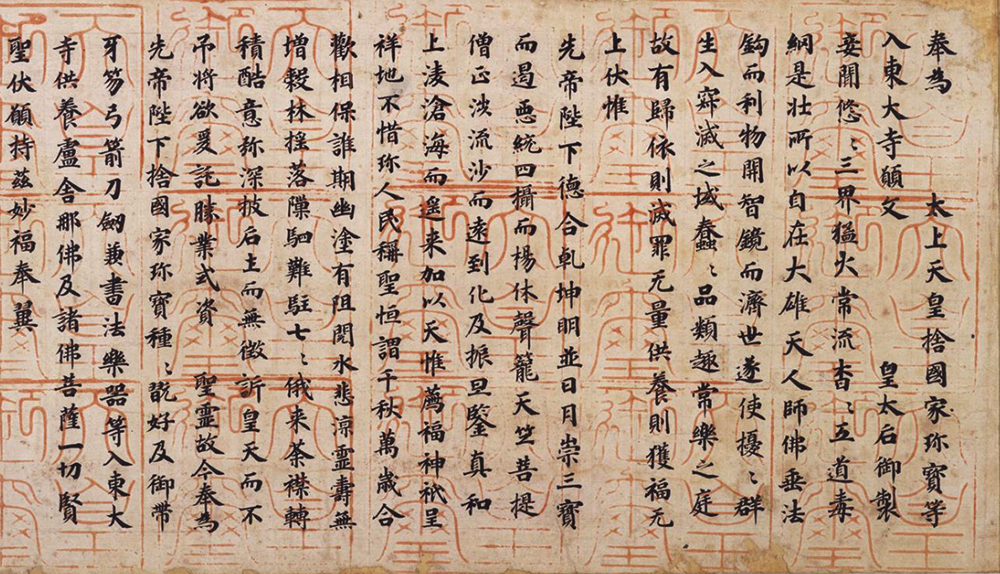 奉為　　太上天皇捨國家珎寶等
入東大寺願文　　皇太后御製
妾聞悠〻三界猛火常流杳〻五道毒
網是壯所以自在大雄天人師佛垂法
鈎而利物開智鏡而濟世遂使擾〻群
生入寂滅之域蠢〻品類趣常樂之庭
故有歸依則滅罪无量供養則獲福无
上伏惟
先帝陛下德合乹坤明並日月崇三寶
而遏惡統四攝而揚休聲籠天竺菩提
僧正渉流沙而遠到化及振旦鑒真和
上凌滄海而遥来加以天惟薦福神祇呈
祥地不惜珎人民稱聖恒謂千秋萬歲合
歡相保誰期幽塗有阻閱水悲凉靈壽無
增穀林揺落隙駟難駐七〻俄来荼襟轉
積酷意弥深披后土而無徵訴皇天而不
吊将欲爰託勝業式資　聖靈故今奉為
先帝陛下捨國家珎寶種〻翫好及御帶
牙笏弓箭刀劔兼書法樂器等入東大
寺供養盧舍那佛及諸佛菩薩一切賢
聖伏願持茲妙福奉翼